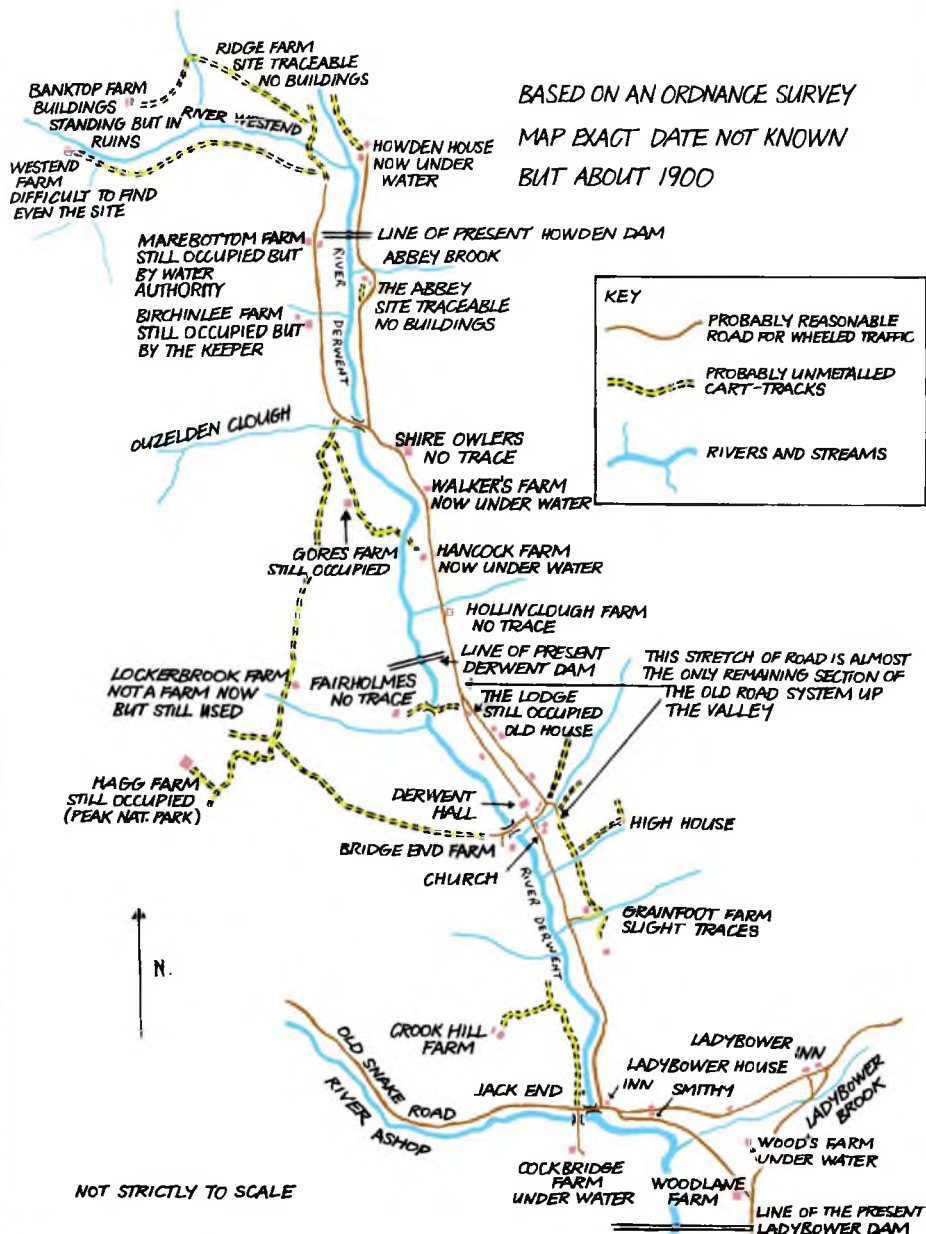 RIDGE FARM
SITE TRACEABLE
NO BUILDINGS
BANKTOP FARM
BUILDINGS
STANDING BUT IN
RUINS
RIVER WESTEND
WESTEND
FARM
DIFFICULT TO FIND
EVEN THE SITE
BASED ON AN ORDNANCE SURVEY
MAP EXACT DATE NOT KNOWN
BUT ABOUT 1900
HOWDEN HOUSE
NOW UNDER
WATER
MAREBOTTOM FARM
STILL OCCUPIED BUT
BY WATER
AUTHORITY
LINE OF PRESENT HOWDEN DAM
ABBEY BROOK
RIVER DERWENT
THE ABBEY
SITE TRACEABLE
NO BUILDINGS
BIRCHINLEE FARM
STILL OCCUPIED BUT
BY THE KEEPER
KEY
PROBABLY REASONABLE
ROAD FOR WHEELED TRAFFIC
PROBABLY UNMETALLED
CART-TRACKS
RIVERS AND STREAMS
OUZELDEN CLOUGH
SHIRE OWLERS
NO TRACE
WALKER'S FARM
NOW UNDER WATER
GORES FARM
STILL OCCUPIED
HANCOCK FARM
NOW UNDER WATER
HOLLINCLOUGH FARM
NO TRACE
LINE OF PRESENT
DERWENT DAM
THIS STRETCH OF ROAD IS ALMOST
THE ONLY REMAINING SECTION OF
THE OLD ROAD SYSTEM UP
THE VALLEY
LOCKERBROOK FARM
NOT A FARM NOW
BUT STILL USED
FAIRHOLMES
NO TRACE
THE LODGE
STILL OCCUPIED
OLD HOUSE
HAGG FARM
STILL OCCUPIED
(PEAK NAT. PARK)
DERWENT
HALL
BRIDGE END FARM
CHURCH
HIGH HOUSE
RIVER DERWENT
GRAINFOOT FARM
SLIGHT TRACES
N.
CROOK HILL
FARM
OLD SNAKE ROAD
RIVER ASHOP
JACK END
LADYBOWER
INN
LADYBOWER HOUSE
INN
SMITHY
LADYBOWER
BROOK
WOOD'S FARM
UNDER WATER
COCKBRIDGE
FARM
UNDER WATER
WOODLANE
FARM
LINE OF THE PRESENT
LADYBOWER DAM
NOT STRICTLY TO SCALE